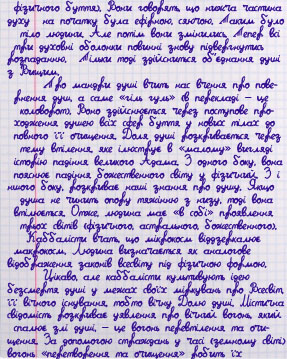 фізичного буття). Вони говорять, що нижча частина
духу на початку була ефірною, сяючою. Таким було
тіло людини. Але потім вони змінились. Тепер всі
три духовні оболонки повинні знову підвергнутись
розпаданню. Тільки тоді здійсниться об'єднання душі
з Вищим.
Про мандри душі вчить нас вчення про пове-
рнення душ, а саме «гілгуль» (в перекладі – це
коловорот). Воно здійснюється через поступове про-
ходження душею всіх сфер буття у нових тілах до
повного її очищення. Доля душі розкривається через
тему втілення, яке ілюструє в «малому» вигляді
історію падіння великого Адама. З одного боку, вона
пояснює падіння божественного світу у фізичний. З і
ншого боку, розкриває наші знання про душу. Якщо
душа не чинить опору тяжінню з низу, тоді вона
втілюється. Отже, людина має «в собі» проявлення
трьох світів (фізичного, астрального, божественного).
Каббалісти вчать, що мікрокосм віддзеркалює
макрокосм. Людина визначається як аналогове
відображення законів всесвіту під фізичною формою.
Цікаво, але каббалісти культивують ідею
безсмертя душі у межах своїх міркувань про Всесвіт,
її вічного існування, тобто вічну Долю душі. Містична
свідомість розкриває уявлення про вічний вогонь, який
спалює злі душі, – це вогонь перевтілення та очи-
щення. За допомогою страждань у часі (земному світі)
вогонь «перетворення та очищення» робить їх